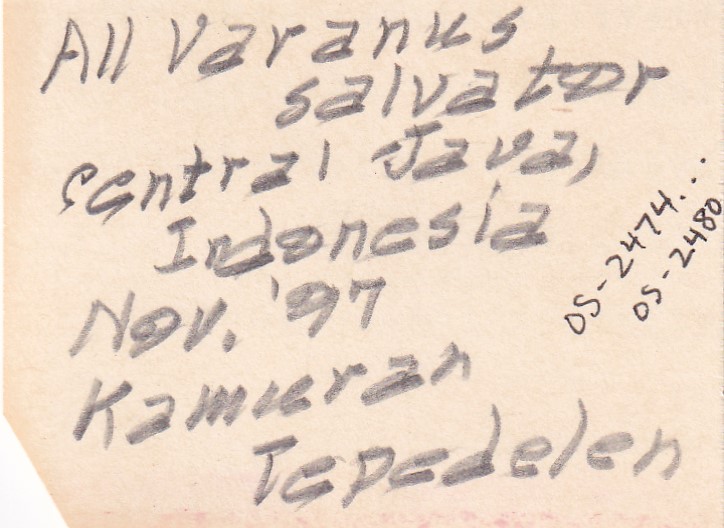 All Varanus
salvator
central Java,
Indonesia
Nov. '97
Kamuran
Tepedelen
OS-2474...
OS-2480